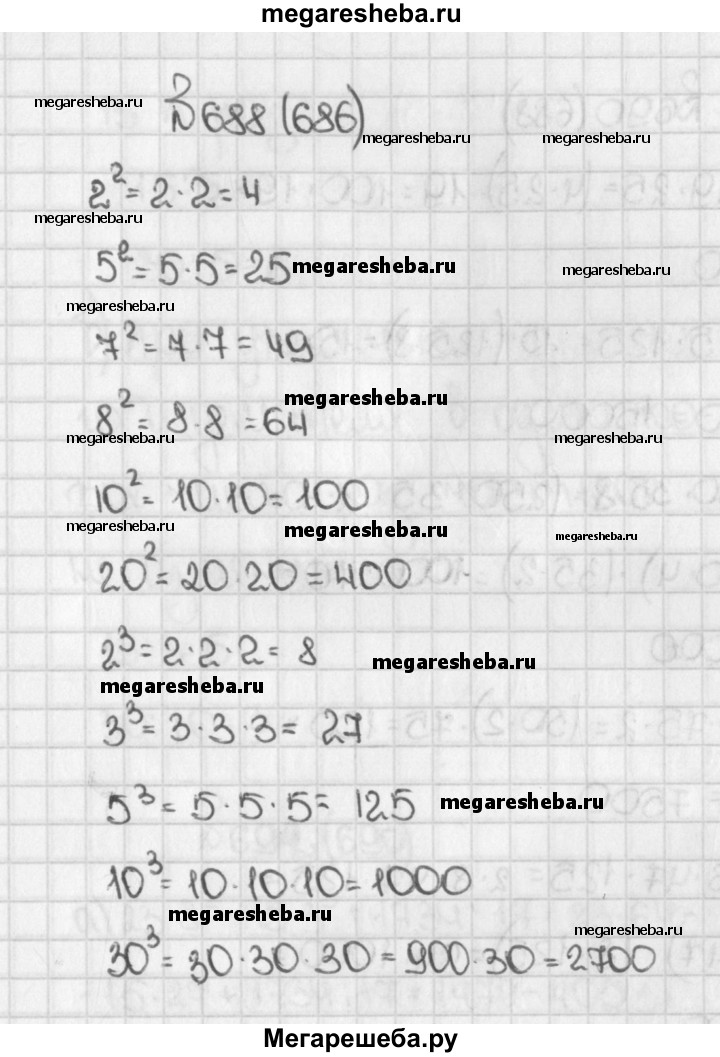 megaresheba.ru
megaresheba.ru
№ 688 (686)
megaresheba.ru
megaresheba.ru
2² = 2·2 = 4
megaresheba.ru
5² = 5·5 = 25
megaresheba.ru
megaresheba.ru
megaresheba.ru
7² = 7·7 = 49
megaresheba.ru
8² = 8·8 = 64
megaresheba.ru
megaresheba.ru
10² = 10·10 = 100
megaresheba.ru
megaresheba.ru
megaresheba.ru
20² = 20·20 = 400
2³ = 2·2·2 = 8
megaresheba.ru
megaresheba.ru
3³ = 3·3·3 = 27
5³ = 5·5·5 = 125
megaresheba.ru
10³ = 10·10·10 = 1000
megaresheba.ru
megaresheba.ru
30³ = 30·30·30 = 900·30 = 2700
Мегарешеба.ру